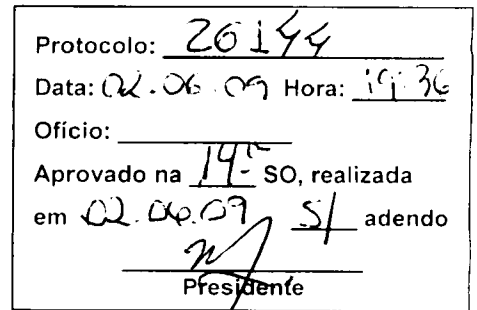 Protocolo: 26144
Data: 02.06.09 Hora: 19:36
Ofício:
Aprovado na 19ª SO, realizada
em 02.06.09 S/ adendo
Presidente